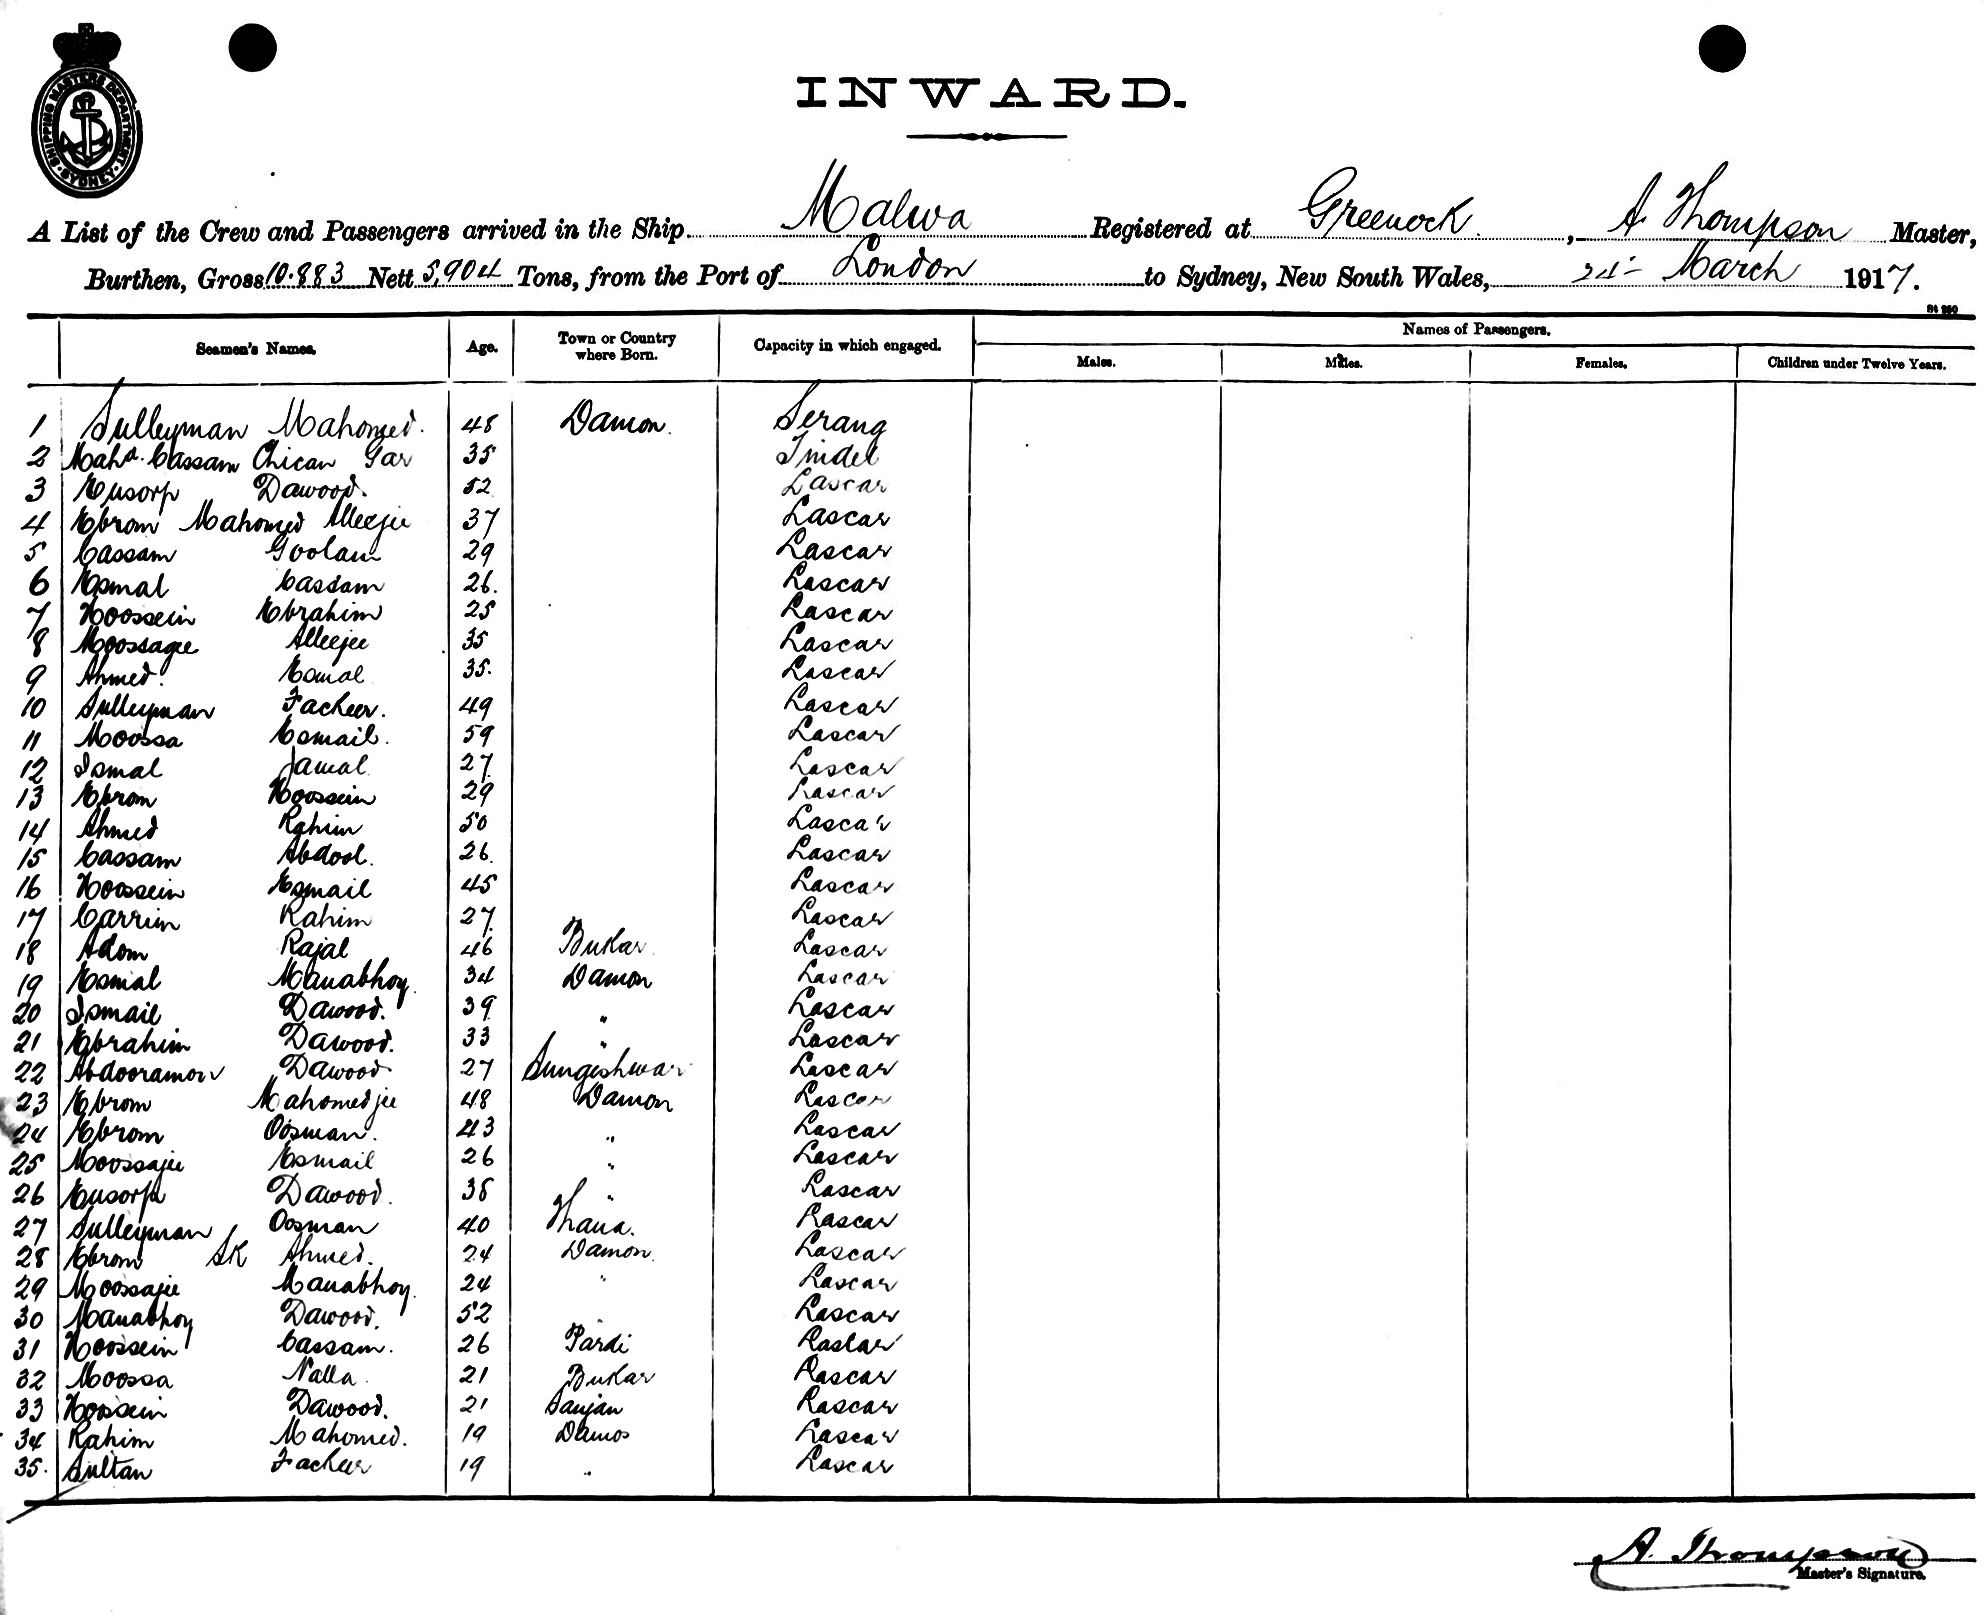 SHIPPING MASTERS DEPARTMENT · SYDNEY ·
INWARD.
A List of the Crew and Passengers arrived in the Ship Malwa Registered at Greenock, A. Thompson Master,
Burthen, Gross 10.883 Nett 5,904 Tons, from the Port of London to Sydney, New South Wales, 24 March 1917.
Seamen's Names. Age. Town or Country where Born. Capacity in which engaged. Names of Passengers.
Males. Males. Females. Children under Twelve Years.
1 Sulleyman Mahomed. 48 Damon. Serang
2 Mahd. Cassam Chican Gar 35 Tindel
3 Eusorp Dawood. 52 Lascar
4 Ebrom Mahomed Alleejee 37 Lascar
5 Cassam Goolam 29 Lascar
6 Esmal Cassam 26. Lascar
7 Hoossein Ebrahim 25 Lascar
8 Moossagee Alleejee 35 Lascar
9 Ahmed. Esmal 35. Lascar
10 Sulleyman Facheer. 49 Lascar
11 Moossa Esmail. 59 Lascar
12 Ismal Jamal 27 Lascar
13 Ebrom Hoossein 29 Lascar
14 Ahmed Rahim 50 Lascar
15 Cassam Abdool. 26. Lascar
16 Hoossein Esmail 45 Lascar
17 Carrim Rahim 27. Lascar
18 Adom Rajal 46 Bukar. Lascar
19 Esmal Manabhoy. 34 Damon Lascar
20 Ismail Dawood. 39 " Lascar
21 Ebrahim Dawood. 33 " Lascar
22 Abdooramon Dawood 27 Sungishwar Lascar
23 Ebrom Mahomedjee 48 Damon Lascar
24 Ebrom Oosman. 43 " Lascar
25 Moossajee Esmail 26 " Lascar
26 Eusorp Dawood. 38 " Lascar
27 Sulleyman Oosman 40 Thana. Lascar
28 Ebrom SK Ahmed. 24 Damon. Lascar
29 Moossajee Manabhoy. 24 " Lascar
30 Manabhoy Dawood. 52 " Lascar
31 Hoossein Cassam. 26 Pardi Lascar
32 Moossa Nalla. 21 Bukar Lascar
33 Hossein Dawood. 21 Sanjan Lascar
34 Rahim Mahomed. 19 Damos Lascar
35. Sultan Facheer 19 " Lascar
A. Thompson
Master's Signature.